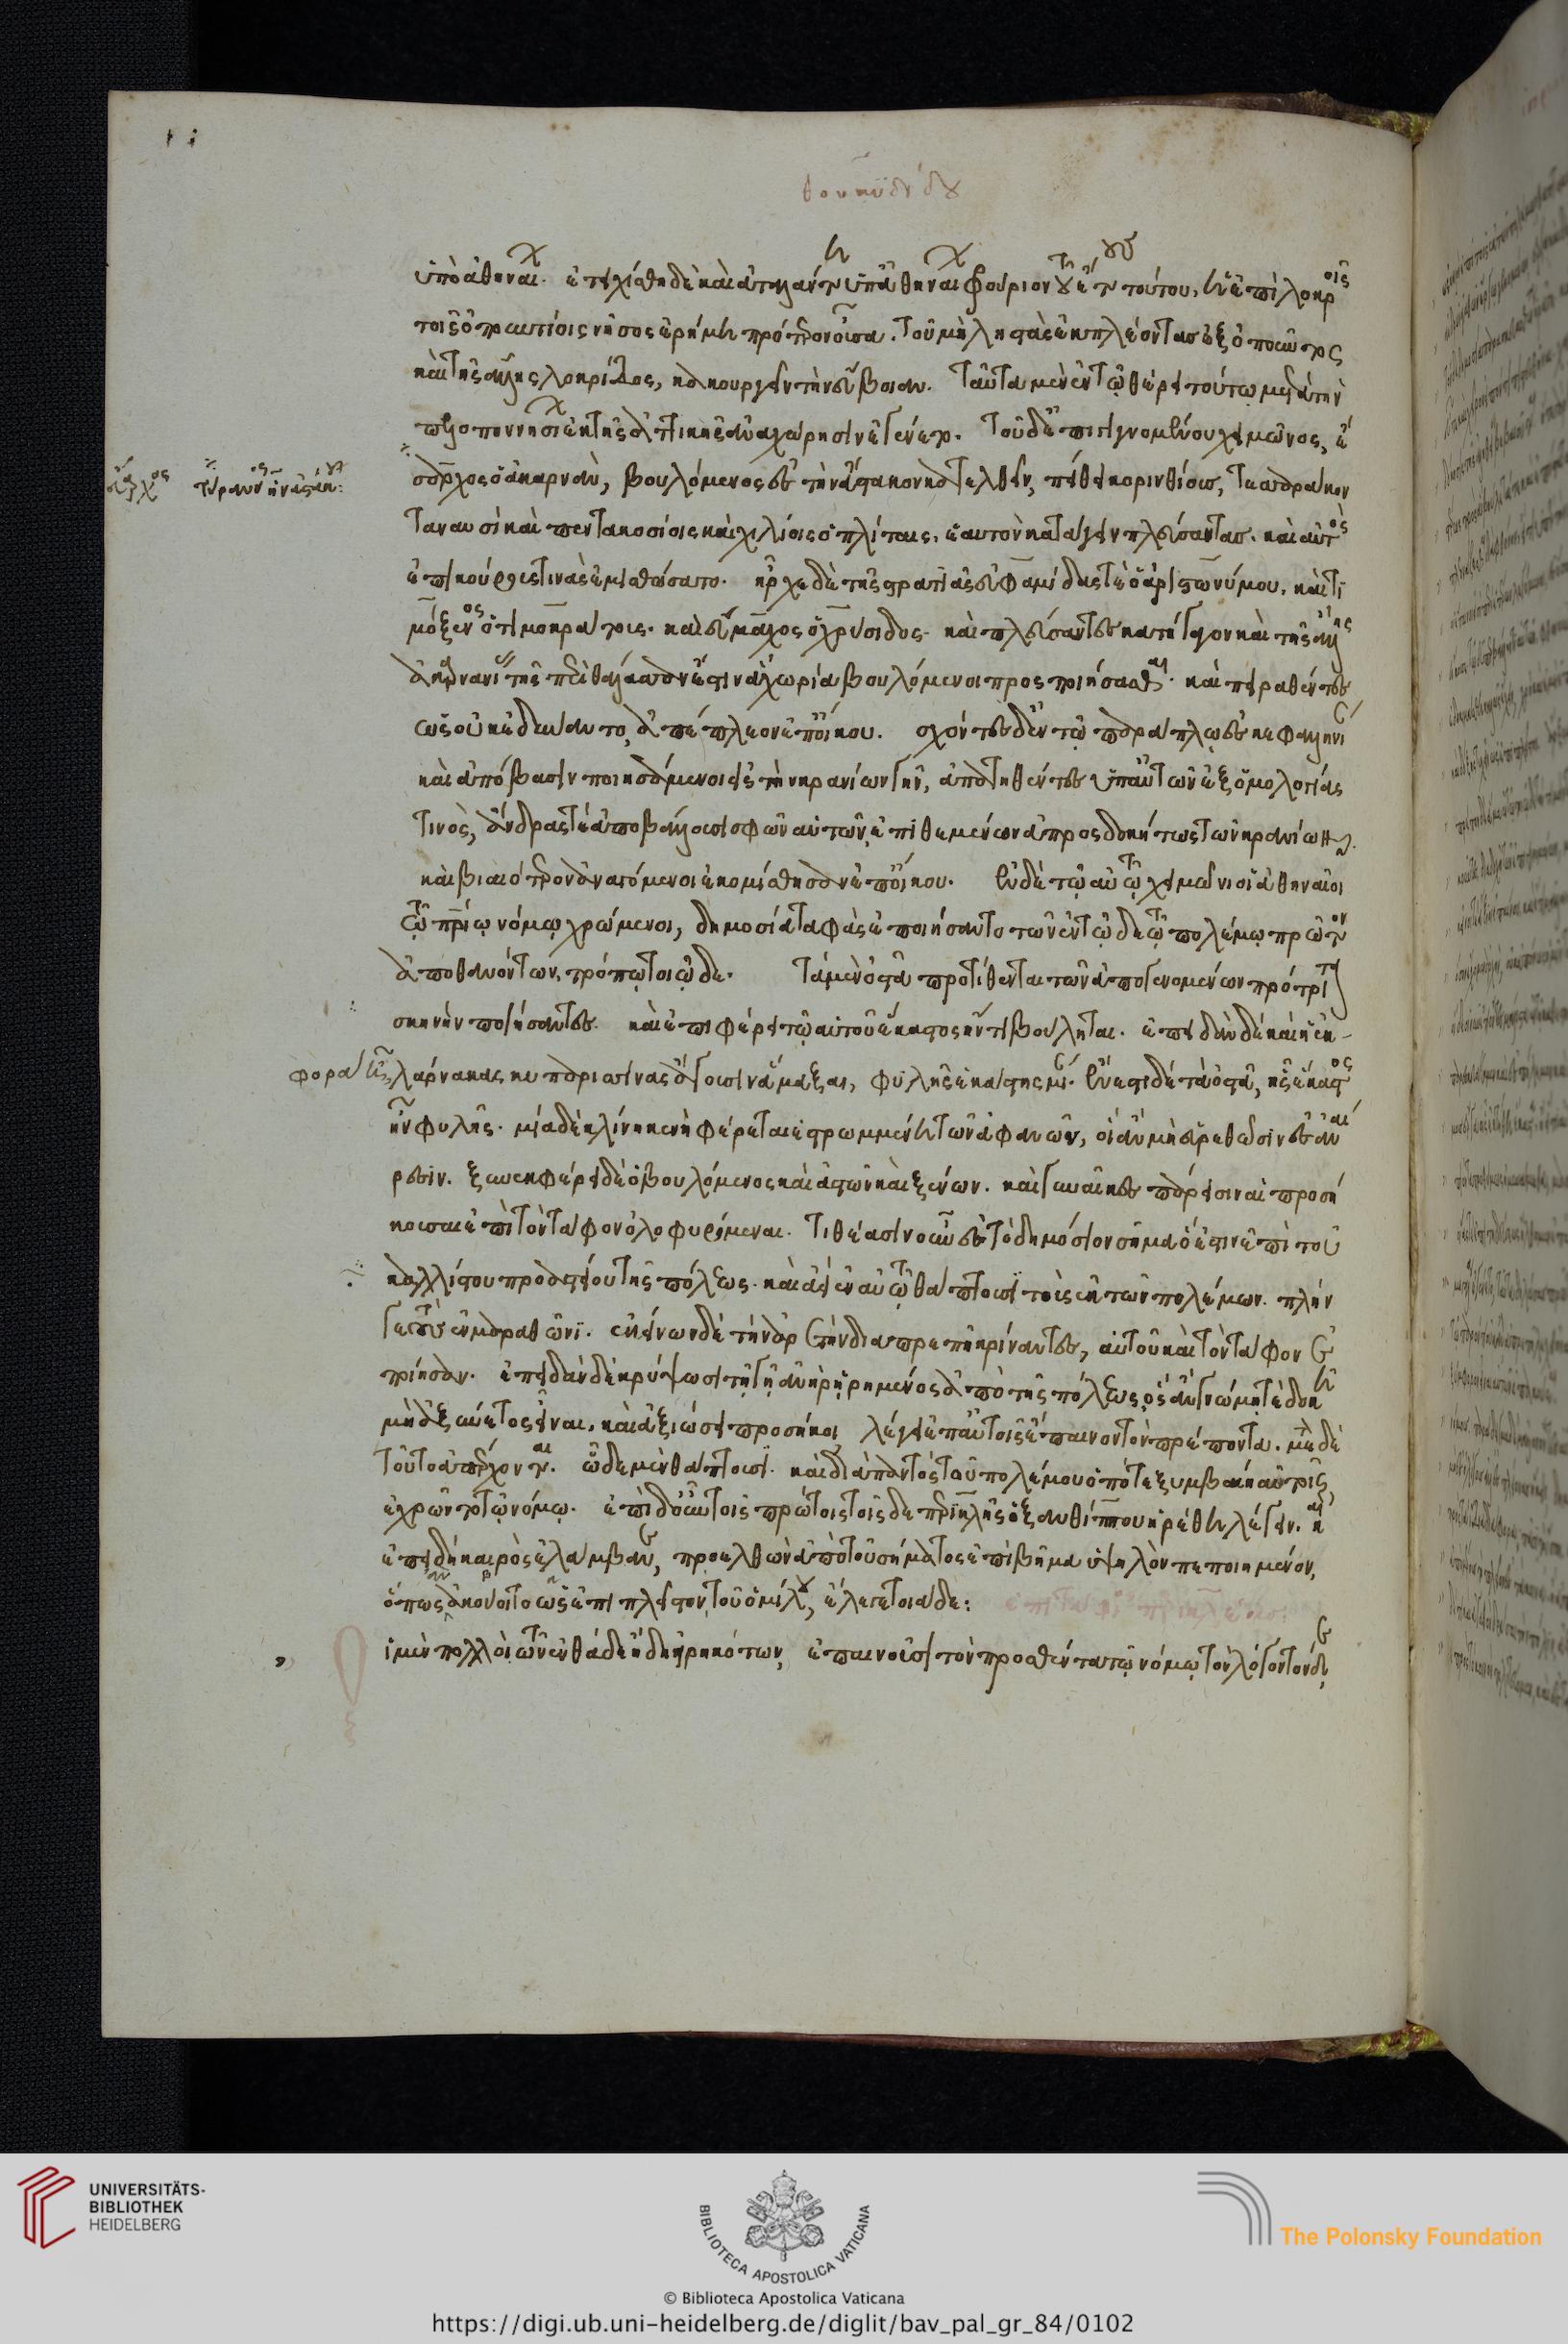 θουκυδίδου
ὑπὸ ἀθηναίων. ἐτειχίσθη δὲ καὶ ἀταλάντη ὑπ' ἀθηναίων φρούριον τούτου, ἡ ἐπὶ λοκροῖς
τοῖς ὀπουντίοις νῆσος ἐρήμη πρότερον οὖσα. τοῦ μὴ ληστὰς ἐκπλέοντας ἐξ ὀποῦντος
καὶ τῆς ἄλλης λοκρίδος, κακουργεῖν τὴν εὔβοιαν. ταῦτα μὲν ἐν τῷ θέρει τούτῳ μετὰ τὴν
πελοποννησίων ἐκ τῆς ἀττικῆς ἀναχώρησιν ἐγένετο. τοῦ δ' ἐπιγιγνομένου χειμῶνος, εὔ
αρχος ὁ ἀκαρνὰν, βουλόμενος ἐς τὴν ἄστακον κατελθεῖν, πείθει κορινθίους, τεσσαράκον
τα ναυσὶ καὶ πεντακοσίοις καὶ χιλίοις ὁπλίταις, ἑαυτὸν κατάγειν πλεύσαντας. καὶ αὐτὸς
ἐπικούρους τινὰς ἐμισθώσατο. ἦρχε δὲ τῆς στρατιᾶς εὐφαμίδας τὲ ὁ ἀριστωνύμου, καὶ τι
μόξενος ὁ τιμοκράτους. καὶ εὔμαχος ὁ χρύσιδος. καὶ πλεύσαντες κατήγαγον καὶ τῆς ἄλλης
ἀκαρνανίας τῆς περὶ θάλασσαν ἔστιν ἃ χωρία βουλόμενοι προσποιήσασθαι. καὶ πειραθέντες
ὡς οὐκ ἐδύναντο, ἀπέπλεον ἐπ' οἴκου. σχόντες δ' ἐν τῷ παράπλῳ ἐς κεφαληνίαν
καὶ ἀπόβασιν ποιησάμενοι εἰς τὴν κρανίων γῆν, ἀπατηθέντες ὑπ' αὐτῶν ἐξ ὁμολογίας
τινὸς, ἄνδρας τὲ ἀποβάλλουσι σφῶν αὐτῶν, ἐπιθεμένων ἀπροσδοκήτως τῶν κρανίων.
καὶ βιαιότερον ἀναγόμενοι ἐκομίσθησαν ἐπ' οἴκου. ἐν δὲ τῷ αὐτῷ χειμῶνι οἱ ἀθηναῖοι
τῷ πατρίῳ νόμῳ χρώμενοι, δημοσίᾳ ταφὰς ἐποιήσαντο τῶν ἐν τῷδε τῷ πολέμῳ πρῶτον
ἀποθανόντων, τρόπῳ τοιῷδε. τὰ μὲν ὀστᾶ προτίθενται τῶν ἀπογενομένων πρότριτα
σκηνὴν ποιήσαντες. καὶ ἐπιφέρει τῷ αὑτοῦ ἕκαστος ἤν τι βούληται. ἐπειδὰν δὲ καὶ ἡ ἐκ-
φορὰ ᾖ, λάρνακας κυπαρισσίνας ἄγουσιν ἅμαξαι, φυλῆς ἑκάστης μίαν. ἔνεστι δὲ τὰ ὀστᾶ, ἧς ἕκαστος
ἦν φυλῆς. μία δὲ κλίνη κενὴ φέρεται ἐστρωμμένη τῶν ἀφανῶν, οἳ ἂν μὴ εὑρεθῶσιν ἐς ἀναί
ρεσιν. ξυνεκφέρει δὲ ὁ βουλόμενος καὶ ἀστῶν καὶ ξένων. καὶ γυναῖκες πάρεισιν αἱ προσή
κουσαι ἐπὶ τὸν τάφον ὀλοφυρόμεναι. τιθέασιν οὖν ἐς τὸ δημόσιον σῆμα ὅ ἐστιν ἐπὶ τοῦ
καλλίστου προαστείου τῆς πόλεως. καὶ ἀεὶ ἐν αὐτῷ θάπτουσι τοὺς ἐκ τῶν πολέμων. πλὴν
γε τοὺς ἐν μαραθῶνι. ἐκείνων δὲ τὴν ἀρετὴν διαπρεπῆ κρίναντες, αὐτοῦ καὶ τὸν τάφον ἐ
ποίησαν. ἐπειδὰν δὲ κρύψωσι τῇ γῇ ἀνὴρ ᾑρημένος ἀπὸ τῆς πόλεως, ὃς ἂν γνώμῃ τὲ δοκῇ
μὴ ἀξύνετος εἶναι, καὶ ἀξιώσει προσήκοι λέγει ἐπ' αὐτοῖς ἔπαινον τὸν πρέποντα. μετὰ δὲ
τοῦτο ἀπέρχονται. ὧδε μὲν θάπτουσι. καὶ διὰ παντὸς τοῦ πολέμου ὁπότε ξυμβαίη αὐτοῖς,
ἐχρῶντο τῷ νόμῳ. ἐπὶ δ' οὖν τοῖς πρώτοις τοῖσδε περικλῆς ὁ ξανθίππου ᾑρέθη λέγειν. καὶ
ἐπειδὴ καιρὸς ἐλάμβανε, προελθὼν ἀπὸ τοῦ σήματος ἐπὶ βῆμα ὑψηλὸν πεποιημένον,
ὅπως ἀκούοιτο ὡς ἐπὶ πλεῖστον τοῦ ὁμίλου, ἔλεγε τοιάδε: ἐπιτάφιος περικλέους:
ἱ μὲν πολλοὶ τῶν ἐνθάδε ἤδη εἰρηκότων, ἐπαινοῦσι τὸν προσθέντα τῷ νόμῳ τὸν λόγον τόνδε,
UNIVERSITÄTS-
BIBLIOTHEK
HEIDELBERG
BIBLIOTECA APOSTOLICA VATICANA
The Polonsky Foundation
© Biblioteca Apostolica Vaticana
https://digi.ub.uni-heidelberg.de/diglit/bav_pal_gr_84/0102